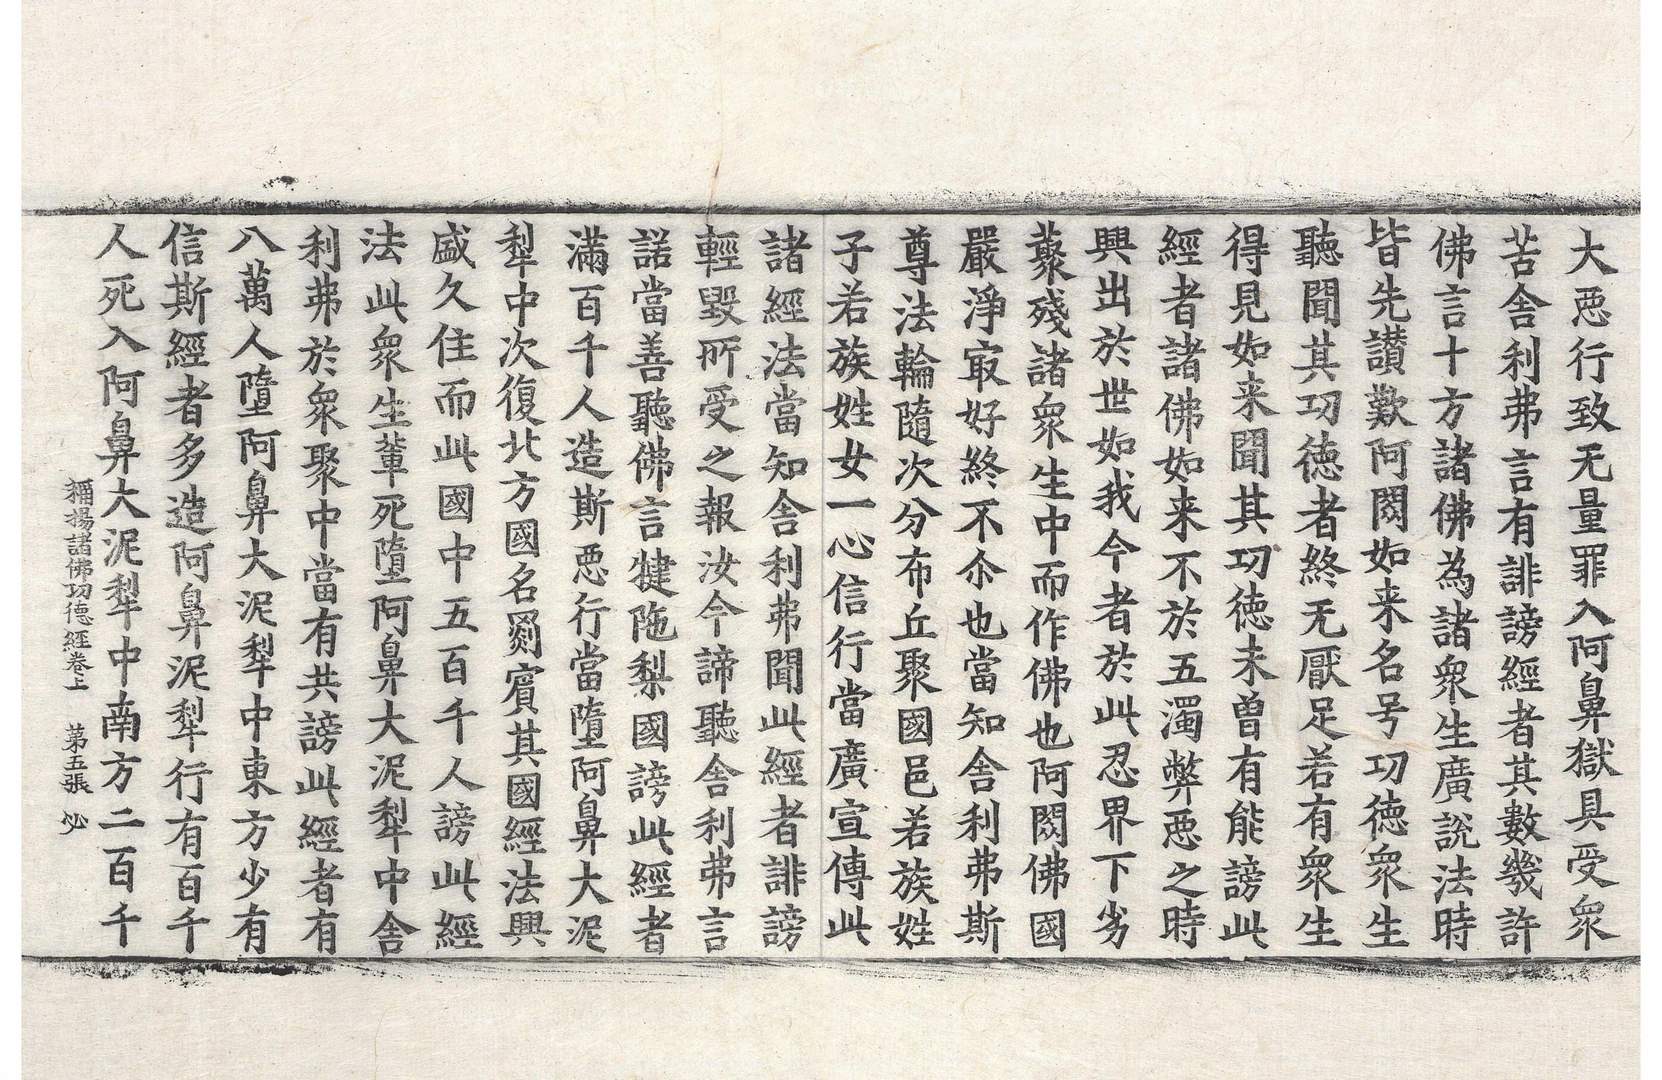 大惡行致无量罪入阿鼻獄具受衆
苦舍利弗言有誹謗經者其數幾許
佛言十方諸佛為諸衆生廣說法時
皆先讃歎阿閦如来名号功徳衆生
聽聞其功徳者終无厭足若有衆生
得見如来聞其功徳未曽有能謗此
經者諸佛如来不於五濁弊惡之時
興出於世如我今者於此忍界下劣
藂殘諸衆生中而作佛也阿閦佛國
嚴淨㝡好終不尒也當知舍利弗斯
尊法輪隨次分布丘聚國邑若族姓
子若族姓女一心信行當廣宣傳此
諸經法當知舍利弗聞此經者誹謗
輕毀所受之報汝今諦聽舍利弗言
諾當善聽佛言犍陁梨國謗此經者
滿百千人造斯惡行當墮阿鼻大泥
犁中次復北方國名罽賓其國經法興
盛久住而此國中五百千人謗此經
法此衆生輩死墮阿鼻大泥犁中舍
利弗於衆聚中當有共謗此經者有
八萬人墮阿鼻大泥犁中東方少有
信斯經者多造阿鼻泥犁行有百千
人死入阿鼻大泥犁中南方二百千
稱揚諸佛功徳經卷上　第五張　必